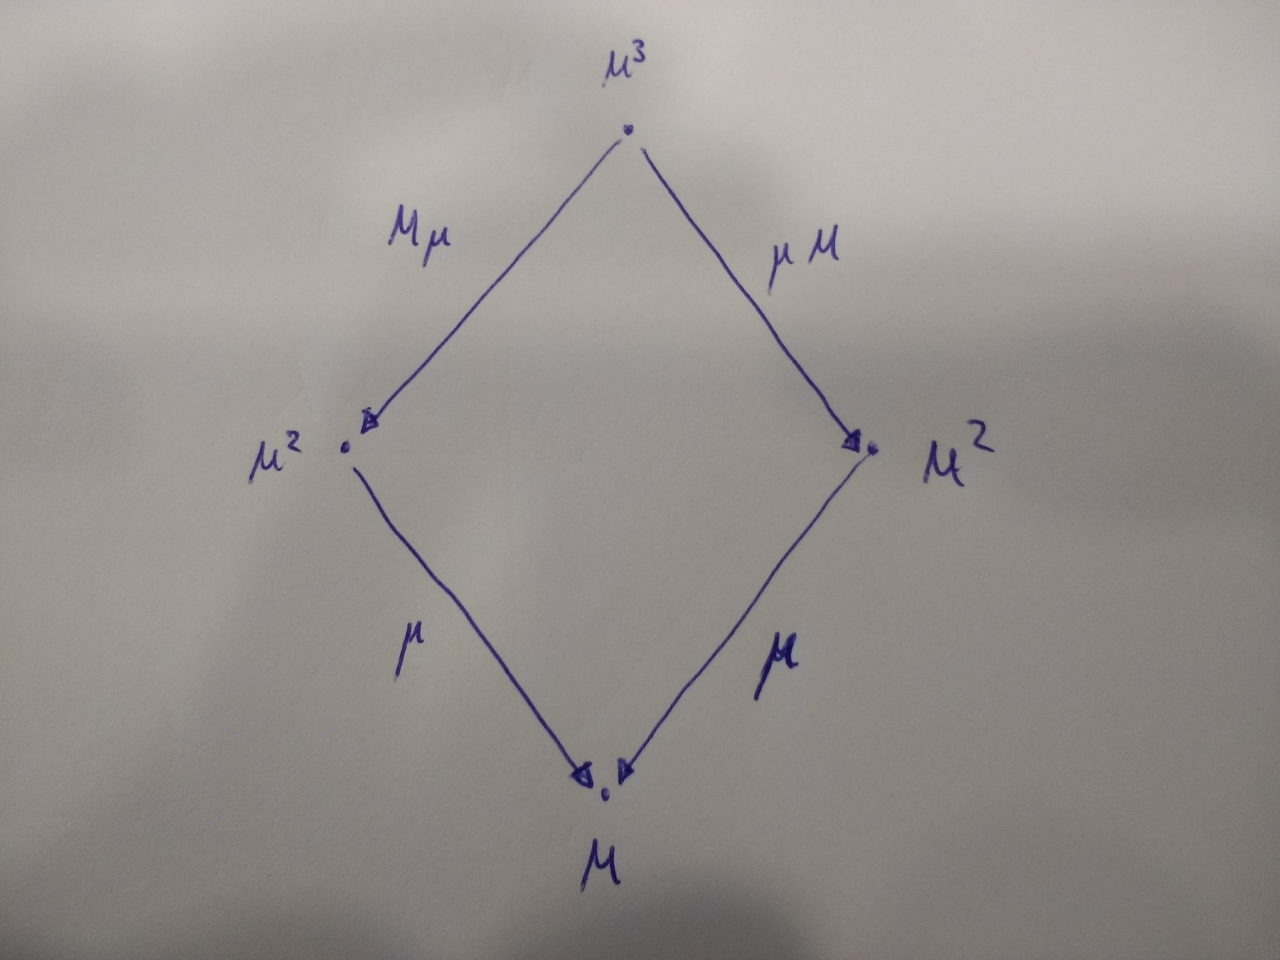 M³
Mμ
μM
M²
M²
μ
μ
M